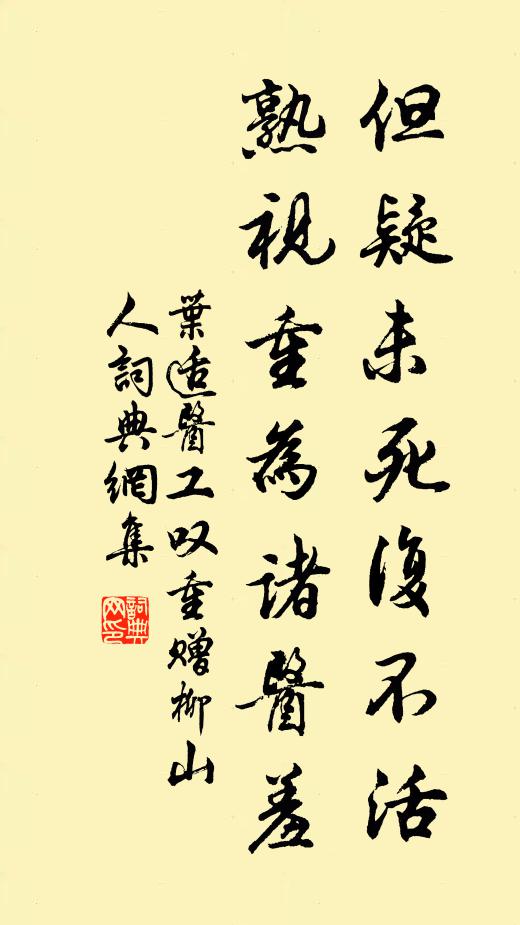 但疑未死復不活
熟視重為諸醫羞
葉适醫工叹重贈柳山
人詞典網集
詞典
网印